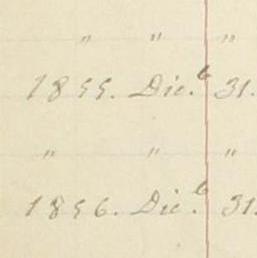 " " "
1855. Dic.e 31.
" " "
1856. Dic.e 31.